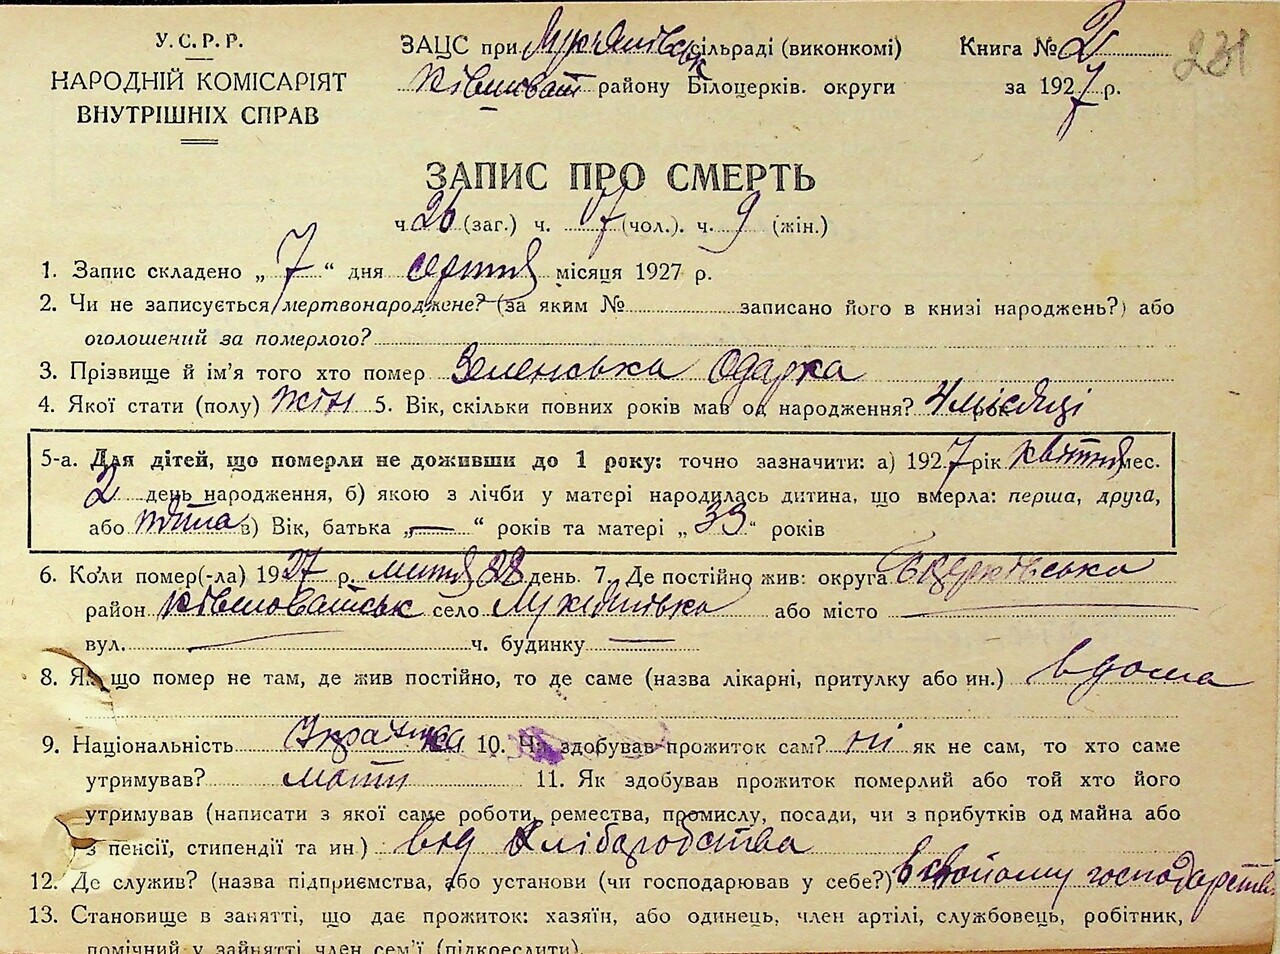 У.С.Р.Р.
НАРОДНІЙ КОМІСАРІЯТ
ВНУТРІШНІХ СПРАВ
ЗАЦС при сільраді (виконкомі)
району Білоцерків. округи
Книга № 2
за 1927 р.
231
ЗАПИС ПРО СМЕРТЬ
ч. 26 (заг.) ч. 17 (чол.). ч. 9 (жін.)
1. Запис складено „ 7 “ дня серпня місяця 1927 р.
2. Чи не записується мертвонароджене? (за яким № записано його в книзі народжень?) або
оголошений за померлого?
3. Прізвище й ім'я того хто помер Зеленська Одарка
4. Якої стати (полу) жін 5. Вік, скільки повних років мав од народження? 4 місяці рок
5-а. Для дітей, що померли не доживши до 1 року: точно зазначити: а) 1927 рік квітня мес.
2 день народження, б) якою з лічби у матері народилась дитина, що вмерла: перша, друга,
або в) Вік, батька „ — “ років та матері „ 33 “ років
6. Коли помер(-ла) 1927 р. день. 7. Де постійно жив: округа Бцерківська
район село або місто
вул. ч. будинку
8. Якщо помер не там, де жив постійно, то де саме (назва лікарні, притулку або ин.) вдома
9. Національність Українка 10. Чи здобував прожиток сам? ні як не сам, то хто саме
утримував? мати 11. Як здобував прожиток померлий або той хто його
утримував (написати з якої саме роботи, ремества, промислу, посади, чи з прибутків од майна або
з пенсії, стипендії та ин.) від хліборобства
12. Де служив? (назва підприємства, або установи (чи господарював у себе?) в свойому господарстві
13. Становище в занятті, що дає прожиток: хазяїн, або одинець, член артілі, службовець, робітник,
помічний у зайнятті член сем'ї (підкреслити).